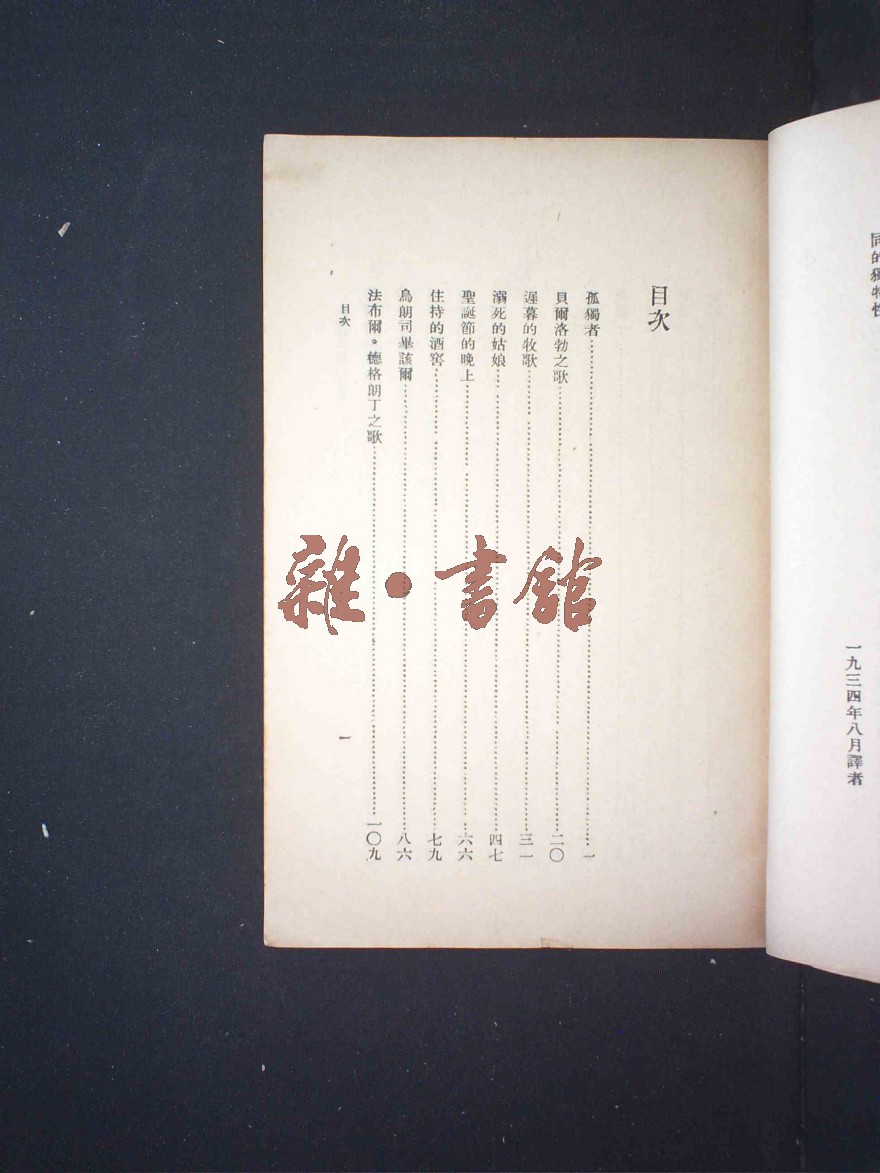 同的獨特性
一九三四年八月譯者
目次
孤獨者 一
貝爾洛勃之歌 二〇
遲暮的牧歌 三一
溺死的姑娘 四七
聖誕節的晚上 六六
住持的酒窖 七九
烏朗司畢該爾 八六
法布爾。德格朗丁之歌 一〇九
目次
一
雜•書館